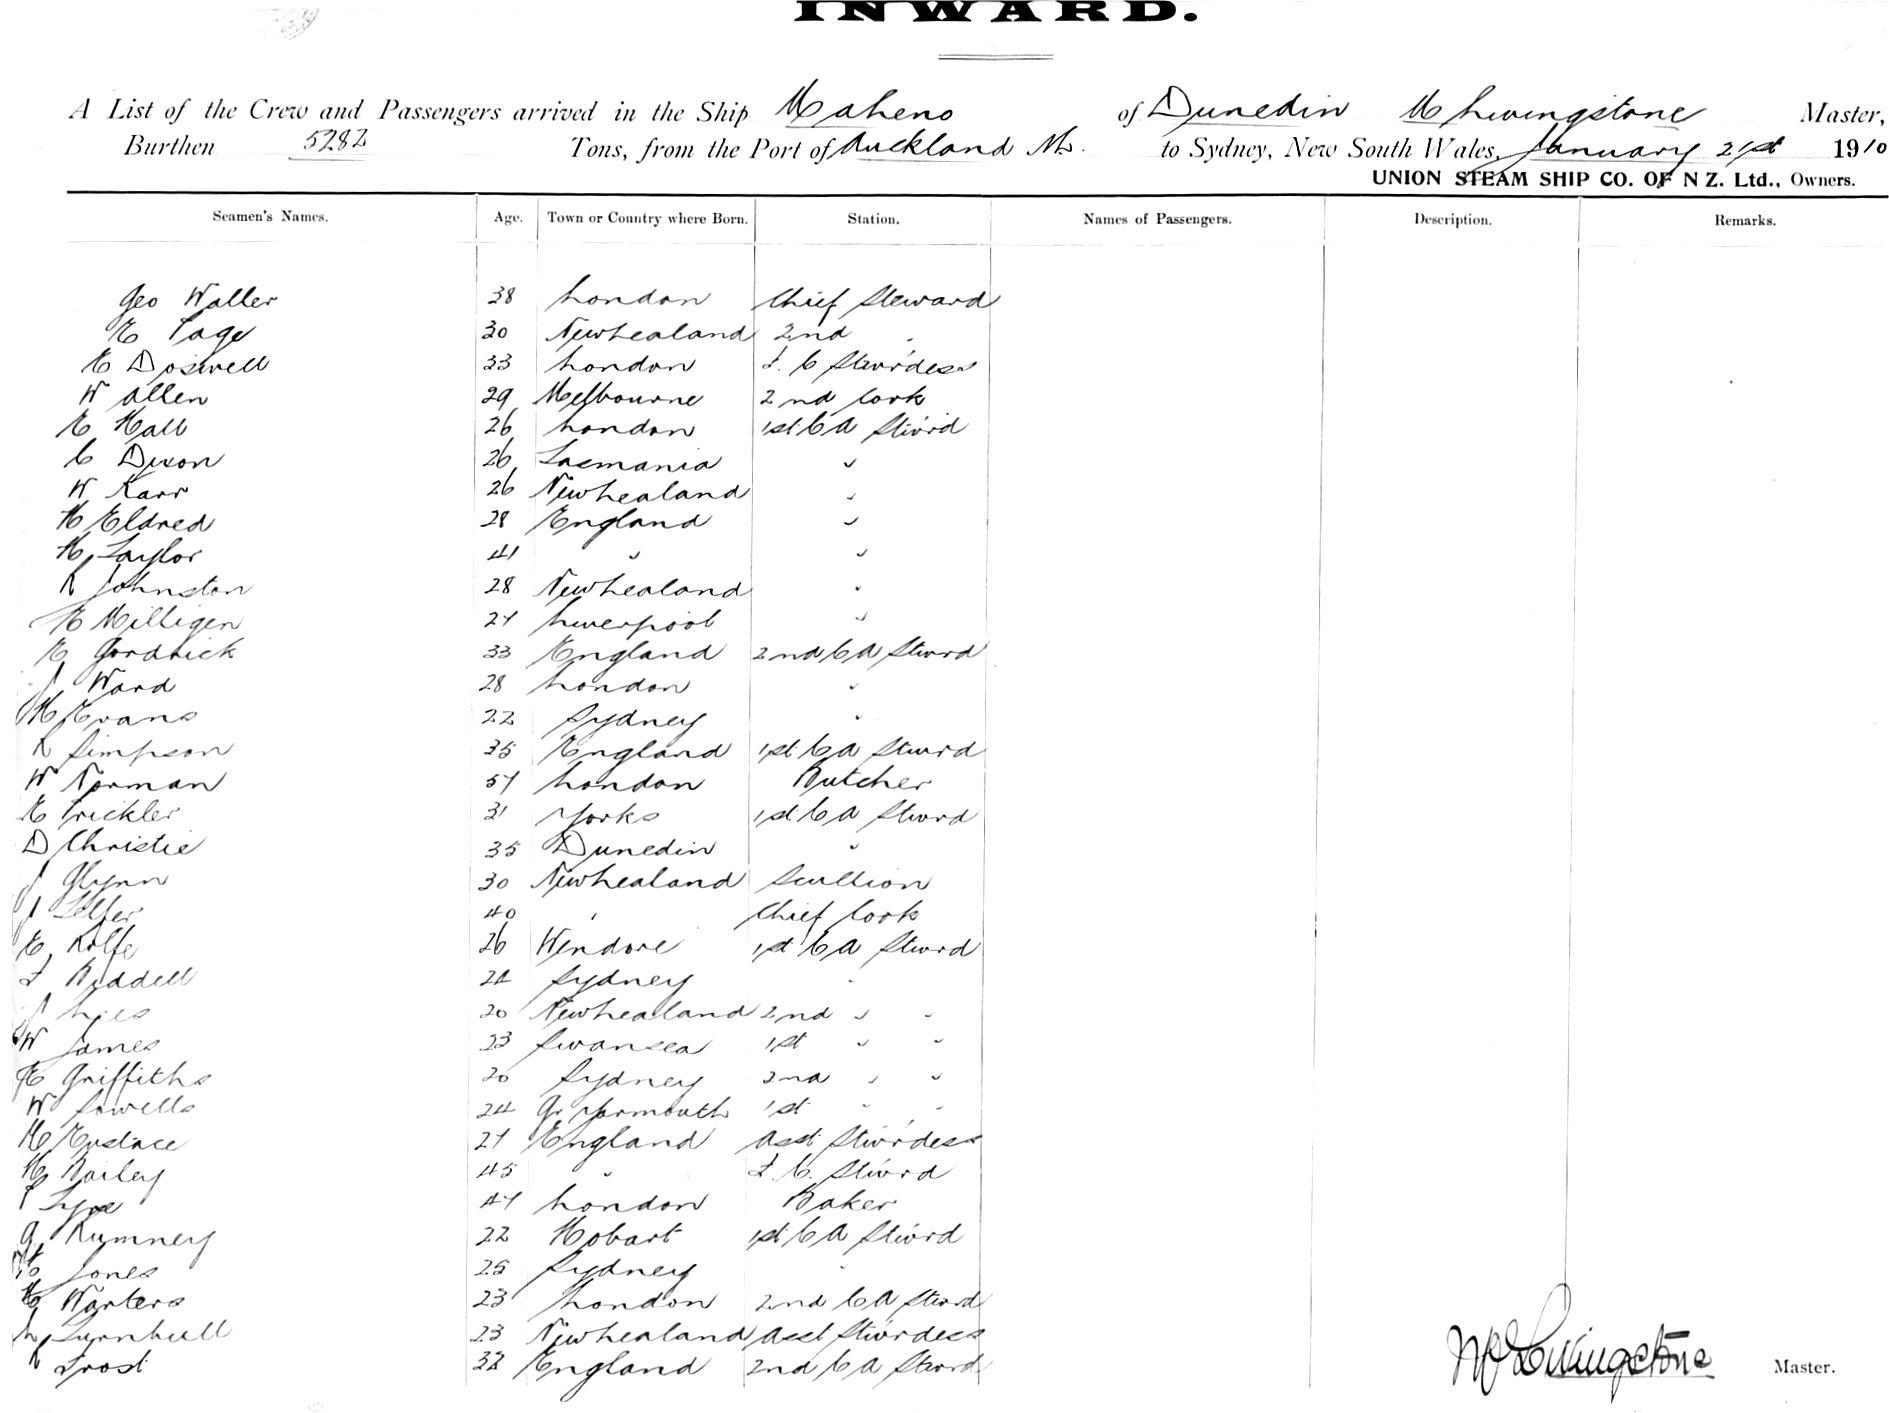 INWARD.
A List of the Crew and Passengers arrived in the Ship Maheno of Dunedin M Livingstone Master,
Burthen 5282 Tons, from the Port of Auckland to Sydney, New South Wales, January 21st 1910
UNION STEAM SHIP CO. OF N Z. Ltd., Owners.
Seamen's Names. Age. Town or Country where Born. Station. Names of Passengers. Description. Remarks.
Geo Waller 38 London Chief Steward
E Page 30 New Zealand 2nd "
E Doswell 33 London F. C Stwrdess
W Allen 29 Melbourne 2nd Cook
E Hall 26 London 1st C A Stwrd
C Dixon 26 Tasmania "
W Karr 26 New Zealand "
H Eldred 28 England "
H Taylor 41 " "
R Johnston 28 New Zealand "
E Milligen 27 Liverpool "
E Gordrick 33 England 2nd C A Stwrd
J Ward 28 London "
H Evans 22 Sydney "
R Simpson 35 England 1st C A Stwrd
W Norman 57 London Butcher
E Prickler 31 Yorks 1st C A Stwrd
D Christie 35 Dunedin "
J Glynn 30 New Zealand Scullion
J Telfer 40 " Chief Cook
E Rolfe 26 1st C A Stwrd
F Riddell 24 Sydney "
J 20 New Zealand 2nd " "
W James 23 Swansea 1st " "
E Griffiths 20 Sydney 2nd " "
W Sowells 24 Gr Yarmouth 1st " "
H Eustace 27 England Asst Stwrdess
H Bailey 45 " F. C. Stwrd
47 London Baker
G Rumney 22 Hobart 1st C A Stwrd
Jones 25 Sydney "
H Warters 23 London 2nd C A Stwrd
L Turnbull 23 New Zealand Asst Stwrdess
R Frost 32 England 2nd C A Stwrd
Livingstone Master.